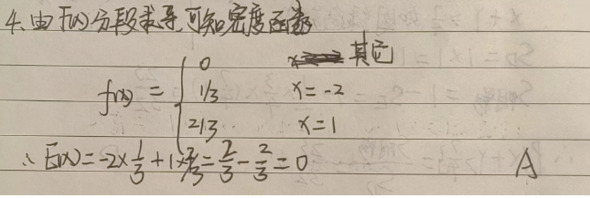 4. 由F(x)分段求导可知密度函数
f(x) = { 0 其它
1/3 x = -2
2/3 x = 1
∴ E(x) = -2×1/3 + 1×2/3 = 2/3 - 2/3 = 0 A